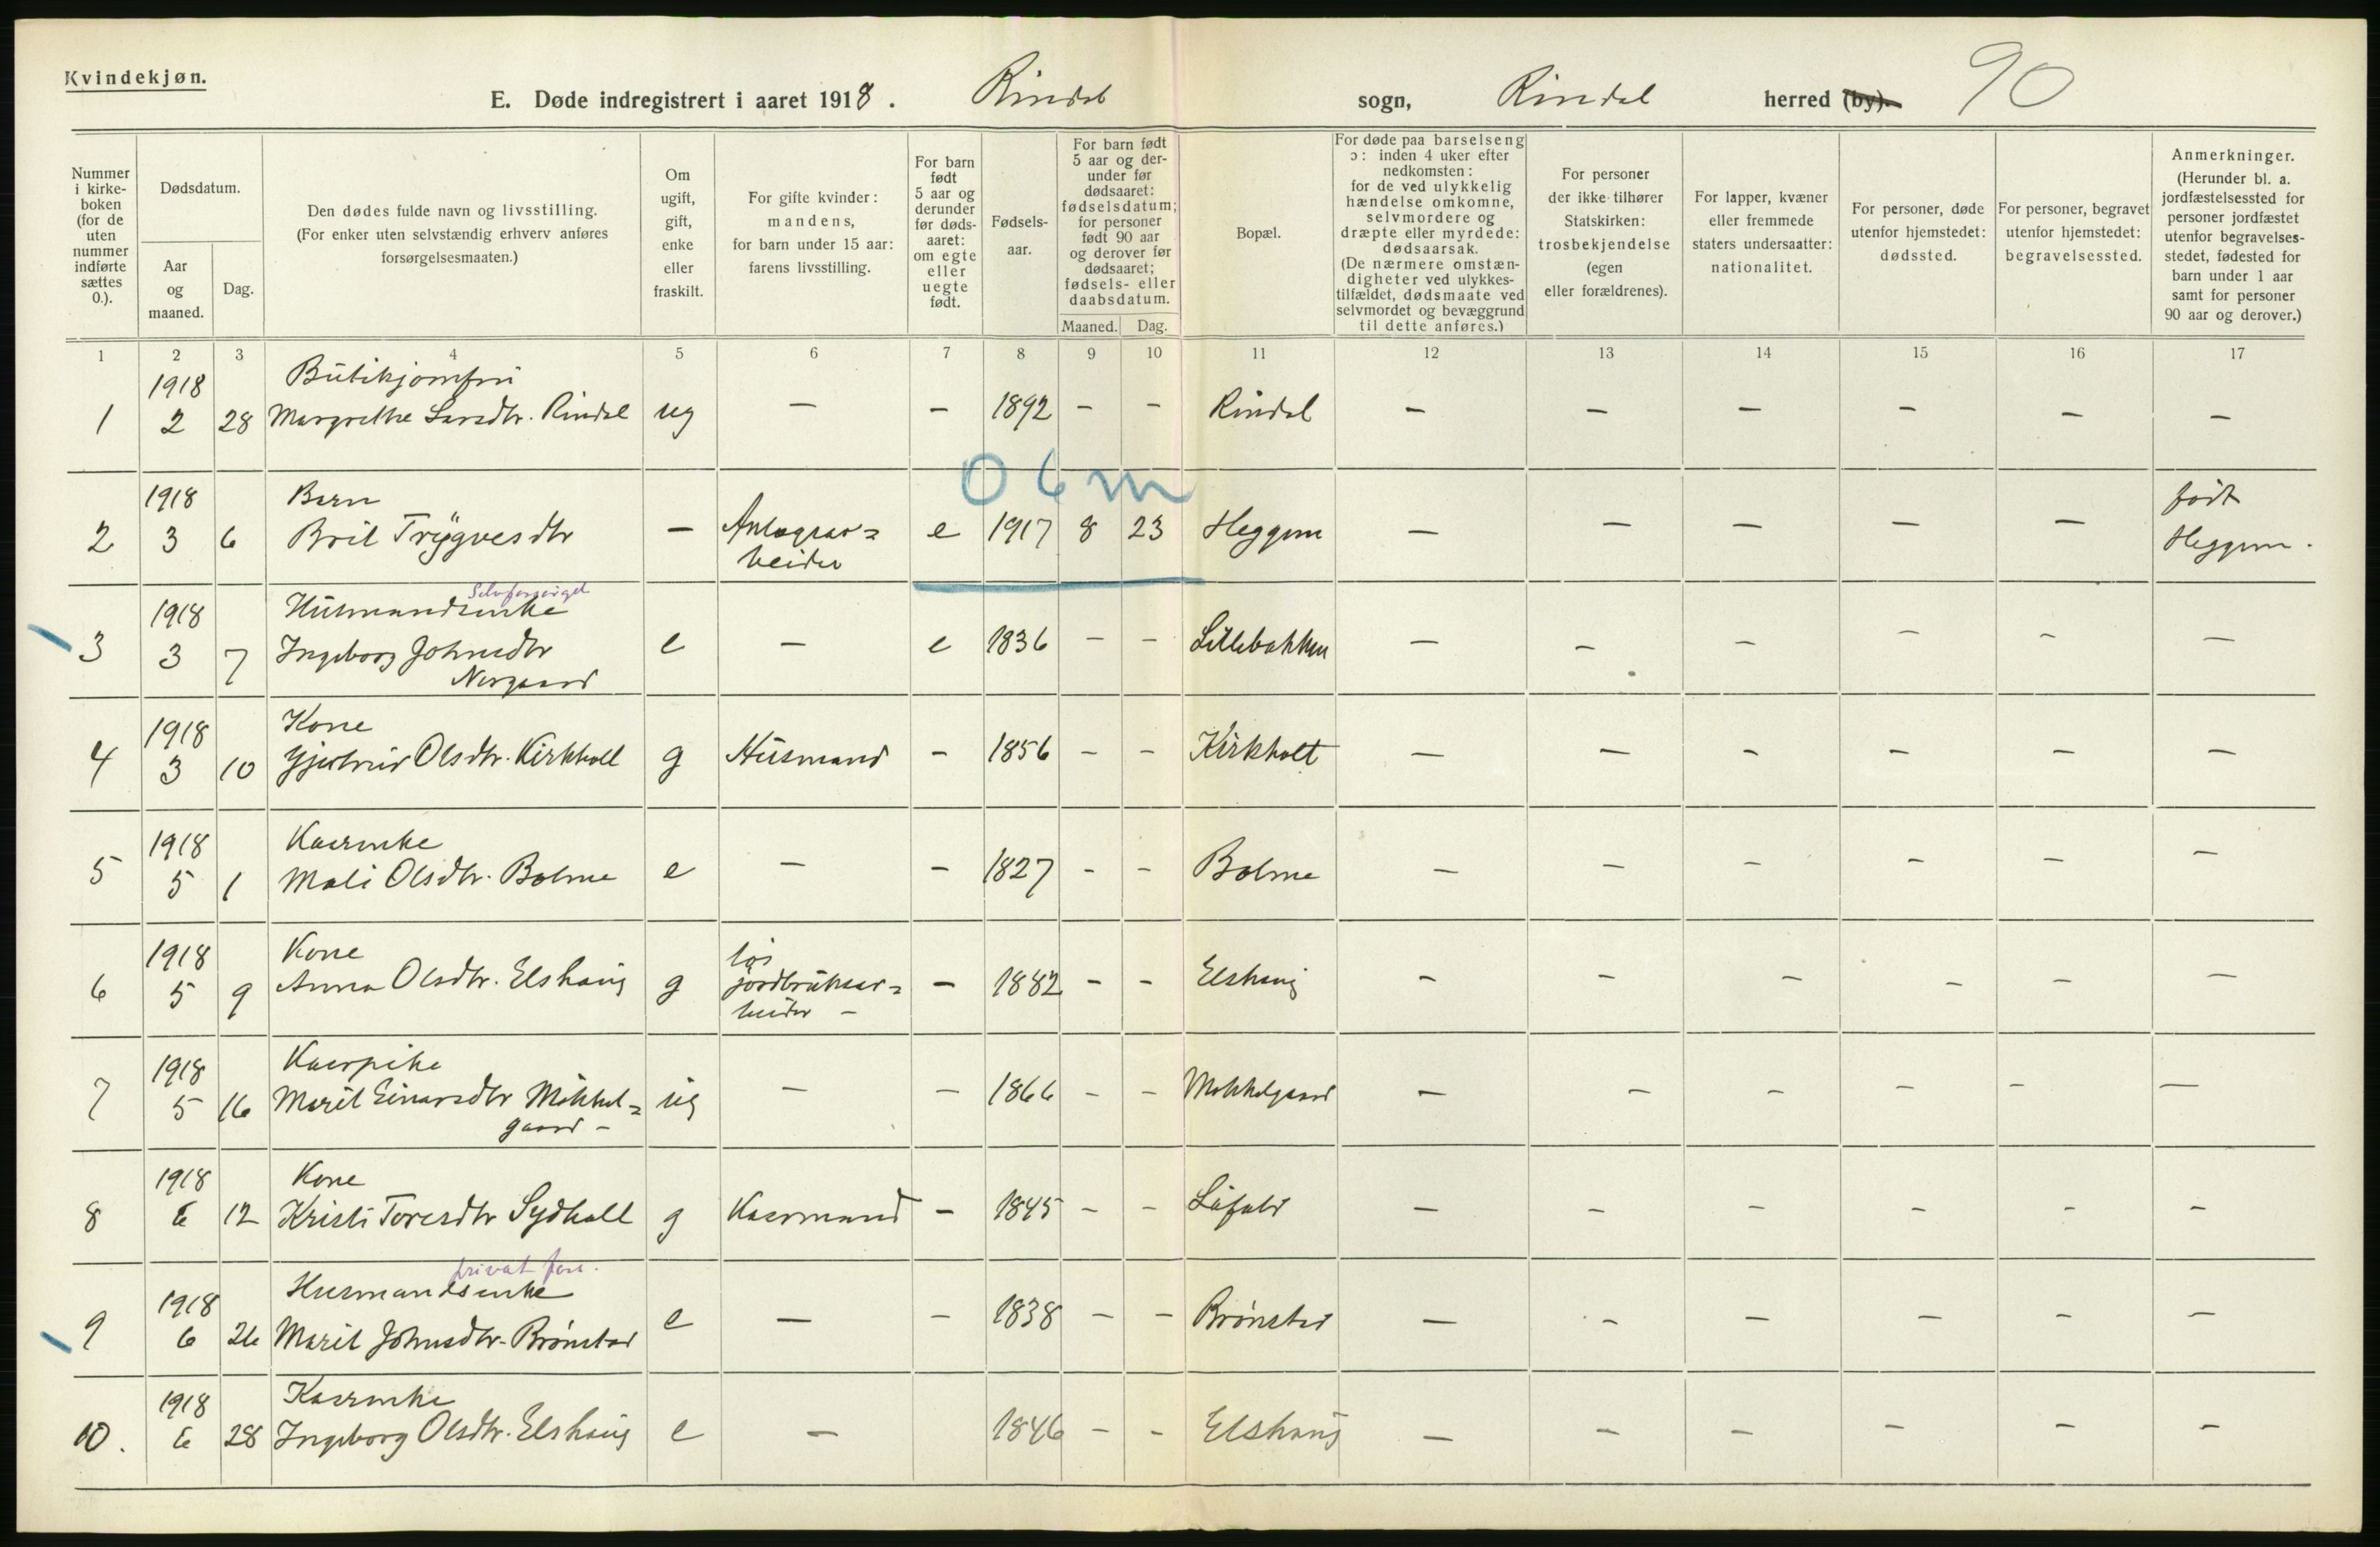 Kvindekjøn.
E. Døde indregistrert i aaret 1918. Rindal sogn, Rindal herred (by). 90
Nummer i kirkeboken (for de uten nummer indførte sættes 0.).
Dødsdatum.
Aar og maaned.
Dag.
Den dødes fulde navn og livsstilling.
(For enker uten selvstændig erhverv anføres forsørgelsesmaaten.)
Om ugift, gift, enke eller fraskilt.
For gifte kvinder: mandens, for barn under 15 aar: farens livsstilling.
For barn født 5 aar og derunder før dødsaaret: om egte eller uegte født.
Fødselsaar.
For barn født 5 aar og derunder før dødsaaret: fødselsdatum; for personer født 90 aar og derover før dødsaaret; fødsels- eller daabsdatum.
Maaned. Dag.
Bopæl.
For døde paa barselseng ɔ: inden 4 uker efter nedkomsten: for de ved ulykkelig hændelse omkomne, selvmordere og dræpte eller myrdede: dødsaarsak.
(De nærmere omstændigheter ved ulykkestilfældet, dødsmaate ved selvmordet og bevæggrund til dette anføres.)
For personer der ikke tilhører Statskirken: trosbekjendelse (egen eller forældrenes).
For lapper, kvæner eller fremmede staters undersaatter: nationalitet.
For personer, døde utenfor hjemstedet: dødssted.
For personer, begravet utenfor hjemstedet: begravelsessted.
Anmerkninger.
(Herunder bl. a. jordfæstelsessted for personer jordfæstet utenfor begravelsesstedet, fødested for barn under 1 aar samt for personer 90 aar og derover.)
1 2 3 4 5 6 7 8 9 10 11 12 13 14 15 16 17
1918 Butikjomfru
1 2 28 Margrethe Larsdtr. Rindal ug — — 1892 - - Rindal — — — — — —
0 6 m
1918 Barn født
2 3 6 Bril Trygvesdtr — Anlægsar= e 1917 8 23 Heggem — — — — — Heggem.
beider
Selvforsørget
1918 Husmandsenke
3 3 7 Ingeborg Johnsdtr e — e 1836 - - Lillebakken — — — — — —
Norgaard
1918 Kone
4 3 10 Gjertrud Olsdtr. Kirkholt g Husmand - 1856 - - Kirkholt — — — — — —
1918 Kaarenke
5 5 1 Mali Olsdtr. Bolme e — - 1827 - - Bolme — — — — — —
1918 Kone løs
6 5 9 Anna Olsdtr. Elshaug g jordbruksar= - 1882 - - Elshaug — — — — — —
beider -
1918 Kaarpike
7 5 16 Marit Einarsdtr Mokkel= ug — - 1866 - - Mokkelgaard — — — — — —
gaard -
1918 Kone
8 6 12 Kristi Toresdtr Sydhall g Kaarmand - 1845 - - Låfald — — — — — —
privat fors.
1918 Husmandsenke
9 6 26 Marit Johnsdtr. Brønstad e — - 1838 - - Brønstad — — — — — —
1918 Kaarenke
10. 6 28 Ingeborg Olsdtr. Elshaug e — 1846 - - Elshaug — — — — — —